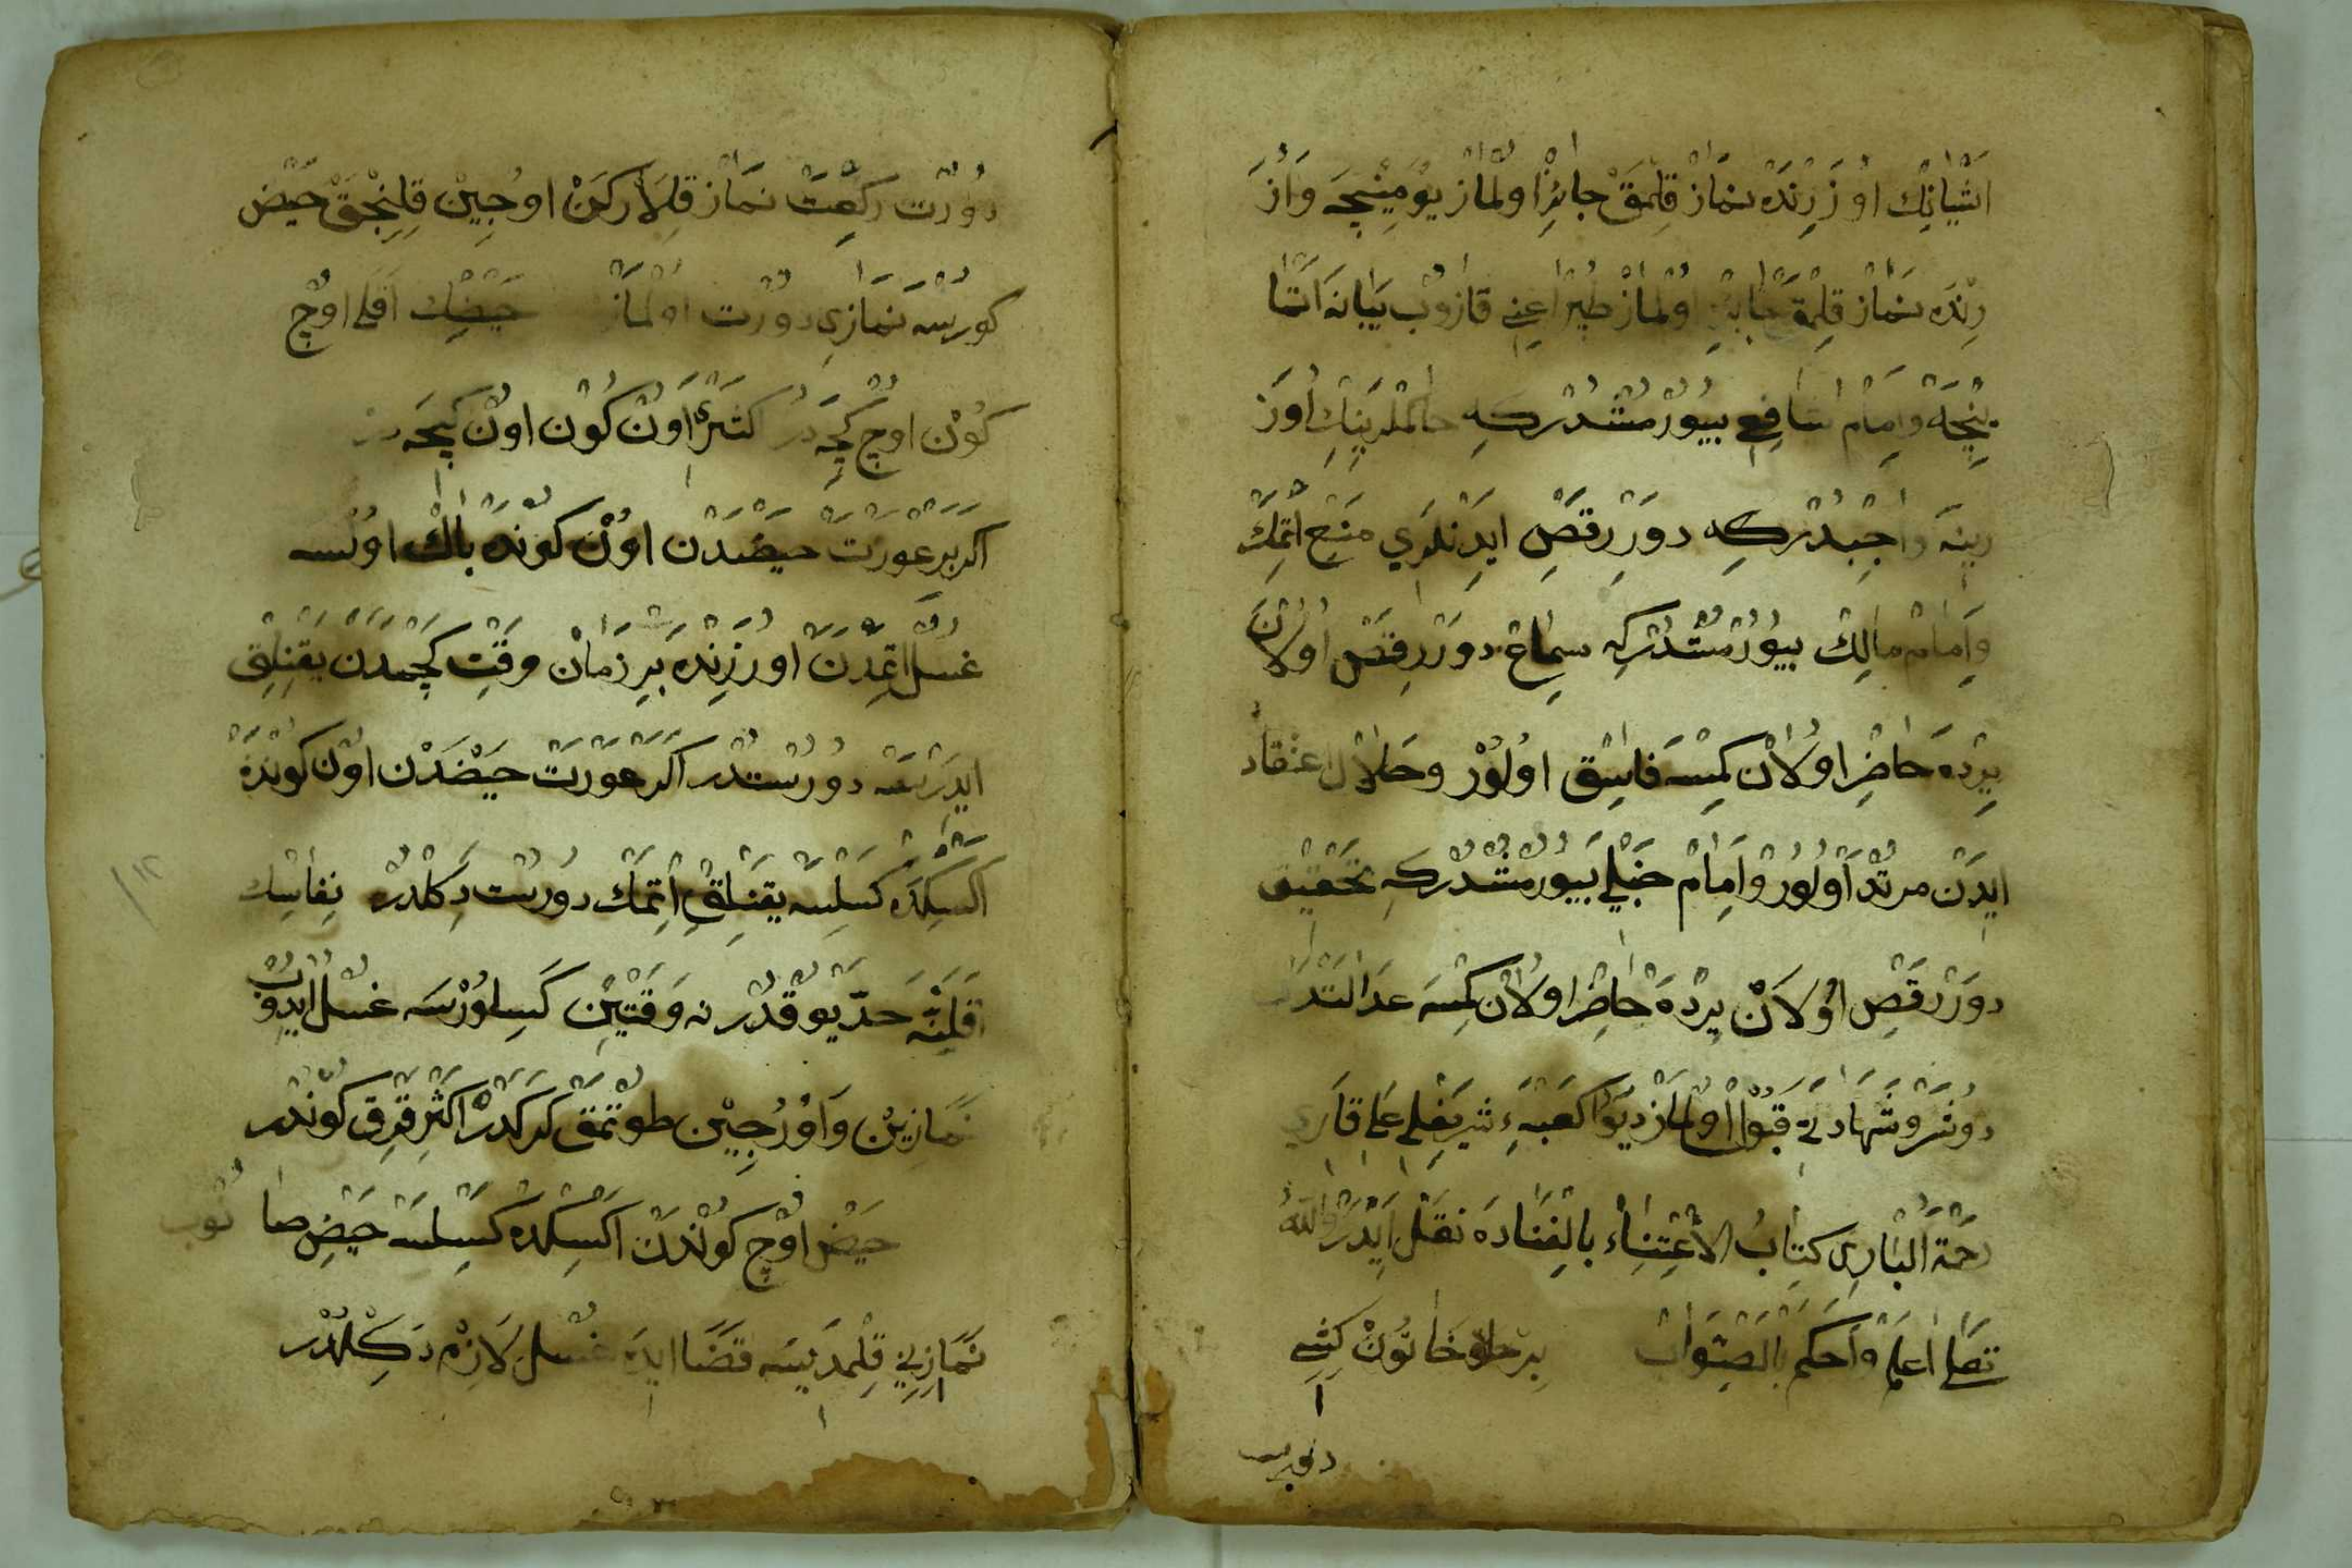 اشيانك اوزرنده نماز قلمق جائز اولماز يومينجه واوز
رنده نماز قلمق جائز اولماز طپراغي قازوب يبانه اتما
ينجه وامام شافعي بيورمشدركه حاكملرينك اوز
رينه واجبدركه دورر رقص ايدنلري منع اتمك
وامام مالك بيورمشدركه سماع دورر رقص اولان
يرده حاضر اولان كمسه فاسق اولور وحلال اعتقاد
ايدن مرتد اولور وامام حنبلي بيورمشدركه تحقيق
دورر رقص اولان يرده حاضر اولان كمسه عدالتدن
دوشر وشهادتي قبول اولماز ديو كعبهء شريفلي علي قاري
رحمة الباري كتاب الاعتناء بالفناده نقل ايدر والله
تعلى اعلم واحكم بالصواب برخلو خاتون كشي
دورت ركعت نماز قلاركن اوجين قلنجق حيض
كورسه نمازي دورت اولماز حيضك اقلي اوچ
كون اوچ كيجه در اكثري اون كون اون كيجه در
اكر بر عورت حيضدن اون كونده پاك اولسه
غسل اتمدن اوزرنده بر زمان وقت كچمدن يقنلق
ايدرسه دورستدر اكر عورت حيضدن اون كوندن
اكسكده كسلسه يقنلق اتمك دورست دكلدر نفاسك
اقلنه حد يوقدر نه وقتين كسلورسه غسل ايدوب
نمازين واورجين طوتمق كركدر اكثر قرق كوندر
حيض اوچ كوندن اكسكده كسلسه حيض صا نوب
نمازيني قلمديسه قضا ايده غسل لازم دكلدر